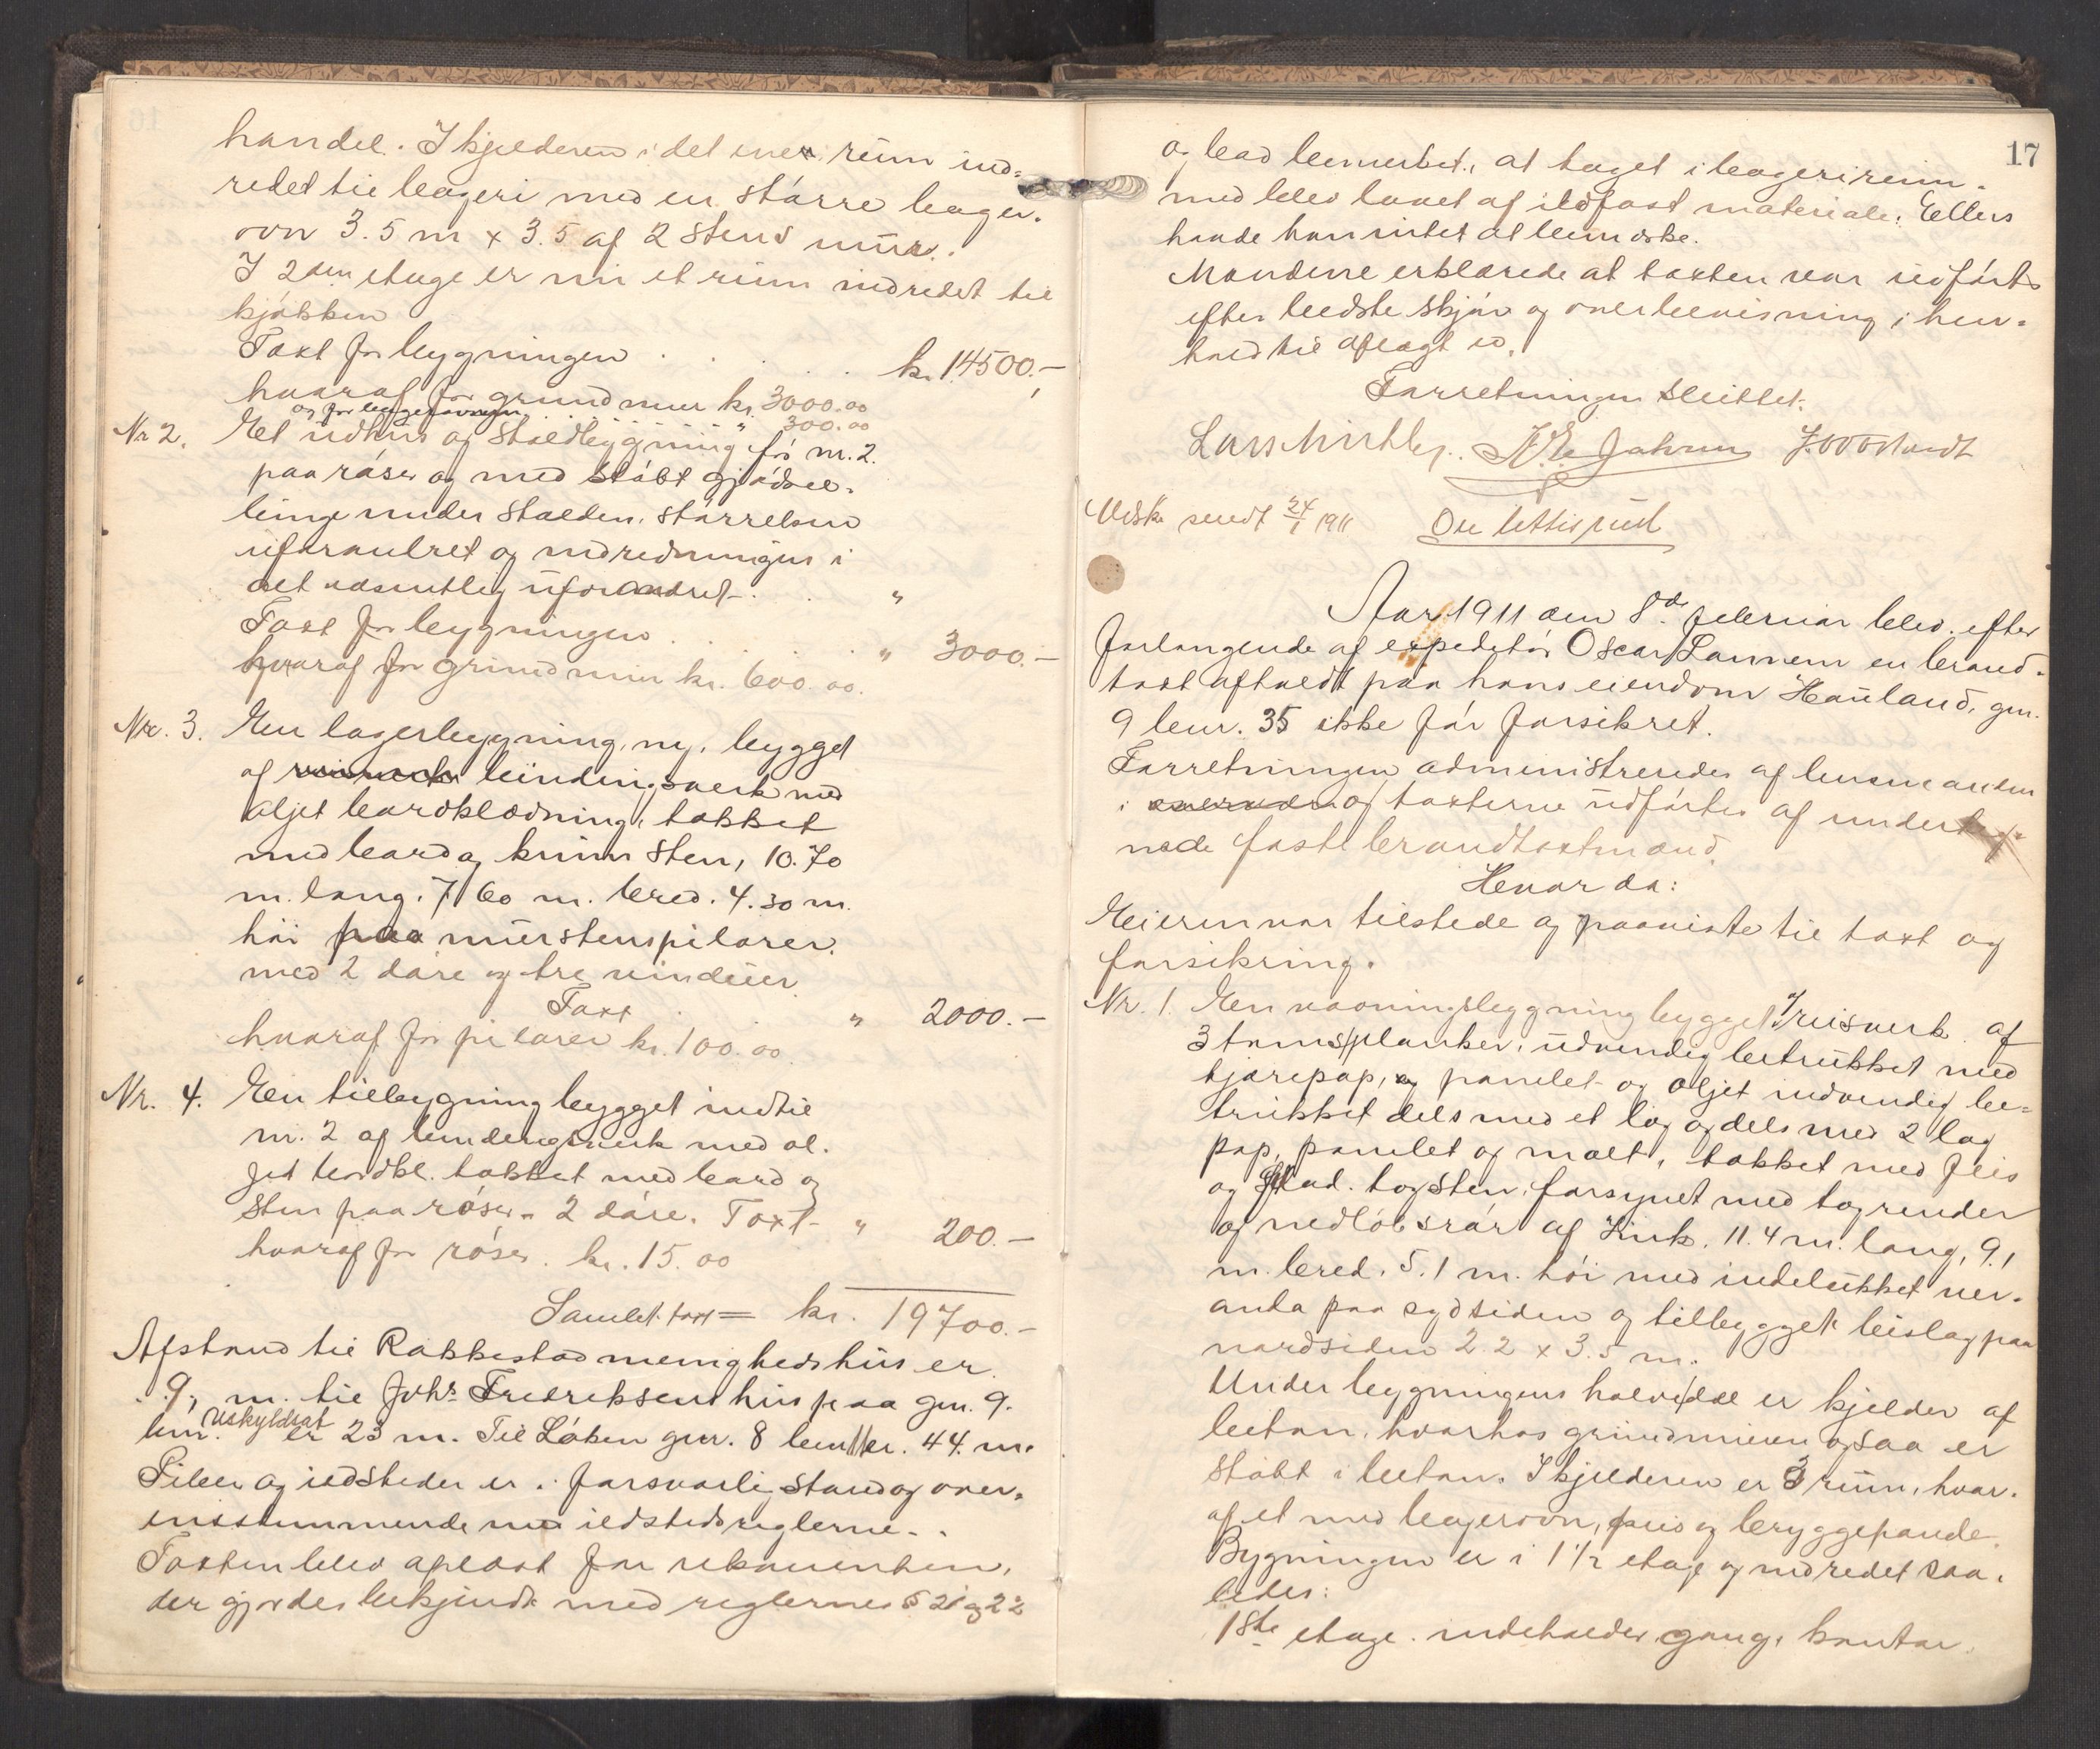 handel. I kjelderen i det ene rum ind-
redet til bageri med en større bager-
ovn 3.5 m x 3.5 af 2 stens mur.
I 2den etage er nu et rum indredet til
kjøkken
Taxt for bygningen . . . . kr. 14500.-
hvoraf for grundmur kr. 3000.00
og for bagerovnen " 300.00
Nr 2. Et udhus og staldbygning før nr. 2.
paa røser og med støbt gjødsel-
binge under stalden, størrelsen
uforandret og indredningen i
det væsentlig uforandret. . "
Taxt for bygningen . . . " 3000.-
hvoraf for grundmur kr. 600.00.
Nr. 3. En lagerbygning, ny, bygget
af bindingsverk med
oljet bordklædning, takket
med bord og krum sten, 10.70
m. lang. 7.60 m. bred. 4.30 m.
høi paa murstenspilarer.
med 2 døre og tre vinduer
Taxt . . " 2000.-
hvoraf for pilarer kr. 100.00
Nr. 4. En tilbygning bygget indtil
nr. 2 af bindingsverk med ol-
jet bordkl. takket med bord og
sten paa røser. 2 døre. Taxt " 200.-
hvoraf for røser. kr. 15.00
Samlet taxt = kr. 19700.-
Afstand til Rakkestad menighedshus er
9, m. til Johs Fredriksens hus paa gnr. 9.
bnr. uskyldsat er 23 m. Til Løken gnr. 8 bnr. 11 er. 44. m.
Piber og ildsteder er i forsvarlig stand og over-
ensstemmende med ildstedsreglerne.
Taxten blev oplæst for rekvirenten,
der gjordes bekjendt med reglernes § 21 og 22
17
og bad bemerket, at taget i bagerirum-
met blev lavet af ildfast materiale. Ellers
havde han intet at bemerke.
Mændene erklærede at taxten var udført
efter bedste skjøn og overbevisning i hen-
hold til aflagt ed.
Forretningen sluttet.
Lars Kirkby. Jahren
Utskr. sendt 24/1 1911 Ole Lettisrud
Aar 1911 den 8de. februar blev efter
forlangende af expeditør Oscar Lannem en brand-
taxt afholdt paa hans eiendom Hauland, gnr.
9 bnr. 35 ikke før forsikret.
Forretningen administreredes af lensmanden
i og taxterne udførtes af underteg-
nede faste brandtaxtmænd.
Hvor da:
Eieren var tilstede og paaviste til taxt og
forsikring.
Nr. 1. En vaaningsbygning bygget af reisverk af
3 toms planker, udvendig betrukket med
tjærepap, og panelet og oljet indvendig be-
trukket dels med et lag og dels med 2 lag
pap, panelet og malt, takket med fleis
og Stad. tagsten, forsynet med tagrender
og nedløbsrør af Zink. 11.4 m. lang, 9.1
m. bred. 5.1 m. høi med indelukket ver-
anda paa sydsiden og tilbygget bislag paa
nordsiden 2.2 x 3.5 m.
Under bygningens halvdel er kjelder af
beton. hvorhos grundmuren ogsaa er
støbt i beton. I kjelderen er 3 rum, hvor-
af et med bagerovn, peis og bryggepande.
Bygningen er i 1 1/2 etage og indredet saa-
ledes:
1ste etage. indeholder gang, kontor.